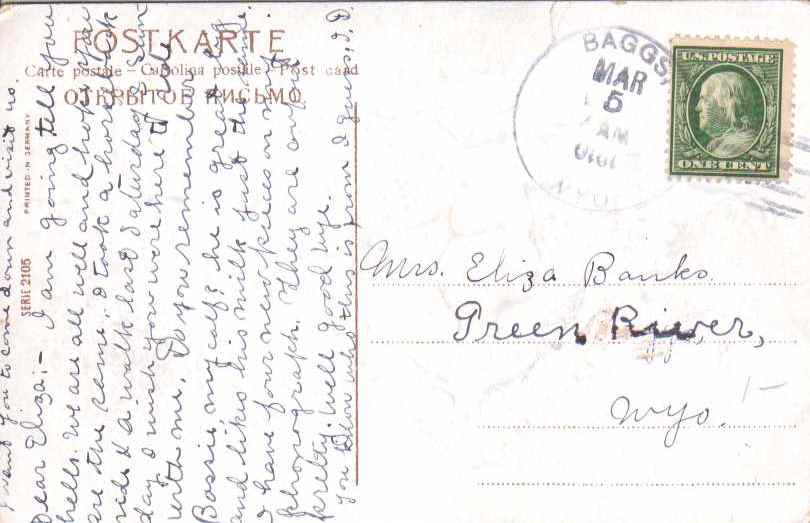 POSTKARTE
Carte postale – Carolina postale – Post card
ОТКРЫТОЕ ПИСЬМО
SERIE 2105
PRINTED IN GERMANY
BAGGS,
MAR
5
AM
1910
WYO.
U.S. POSTAGE
ONE CENT
Mrs. Eliza Banks.
Green River,
Wyo.
Dear Eliza:– I am going tell you
hello. We are all well and hope you
are the same. I took a horseback
ride & a walk last Saturday & Sun
day. I wish you were here to ride
with me. Do you remember
Bossie my calf? he is great big
and likes his milk just the same.
I have four new pieces on my
phonograph. They are awful
pretty. Well good bye.
you know who this is from I guess, I.D.
I want you to come down and visit us.